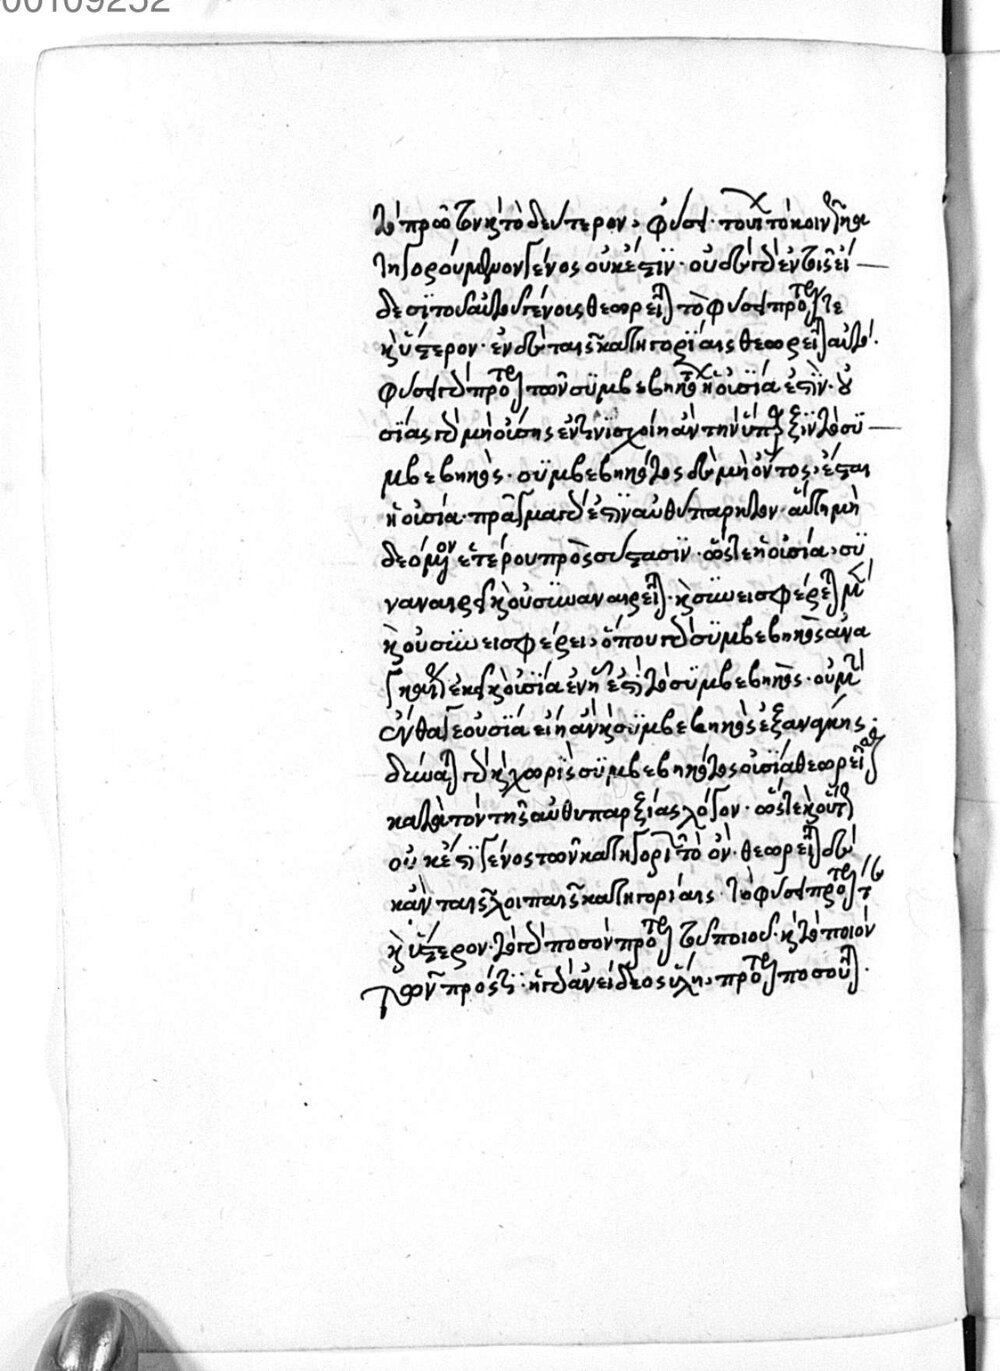 00109252
τὸ πρῶτον καὶ τὸ δεύτερον, φύσει· τούτων τὸ κοινῇ κα
τηγορούμενον γένος οὐκ ἔστιν· οὐδὲ γὰρ ἐν τοῖς εἴ
δεσι τοῦ αὐτοῦ γένους θεωρεῖται τὸ φύσει πρότερόν τε
καὶ ὕστερον· ἐν δὲ ταῖς κατηγορίαις θεωρεῖται αὐτό·
φύσει γὰρ προτέρα τῶν συμβεβηκότων ἡ οὐσία ἐστίν· οὐ
σίας γὰρ μὴ οὔσης ἐν τίνι σχοίη ἂν τὴν ὕπαρξιν τὸ συ
μβεβηκός· συμβεβηκότος δὲ μὴ ὄντος, ἔσται
ἡ οὐσία· πρᾶγμα γάρ ἐστιν αὐθύπαρκτον· αὕτη μὴ
δεόμενον ἑτέρου πρὸς σύστασιν· ὥστε ἡ οὐσία, συ
ναναιρεῖ καὶ οὐ συναναιρεῖται· καὶ συνεισφέρεται μὲν
καὶ οὐ συνεισφέρει, ὅπου γὰρ συμβεβηκὸς ἀνα
γκαίως ἐκεῖ καὶ οὐσία ἐν ᾗ ἐστι τὸ συμβεβηκός· οὐ μὴν
ἔνθα γε οὐσία εἴη ἂν καὶ συμβεβηκὸς ἐξ ἀνάγκης·
δύναται γὰρ καὶ χωρὶς συμβεβηκότος οὐσία θεωρεῖσθαι
κατὰ τὸν τῆς αὐθυπαρξίας λόγον· ὥστε καὶ οὕτως
οὐκ ἔστι γένος τῶν κατηγοριῶν τὸ ὄν· θεωρεῖται δὲ
κἀν ταῖς λοιπαῖς κατηγορίαις· τὸ φύσει πρότερόν τε
καὶ ὕστερον· τὸ γὰρ ποσὸν πρότερον τοῦ ποιοῦ· καὶ τὸ ποιὸν
τῶν πρός τι· ἡ γὰρ ἀνείδεος ὕλη, πρότερον ποσοῦται·